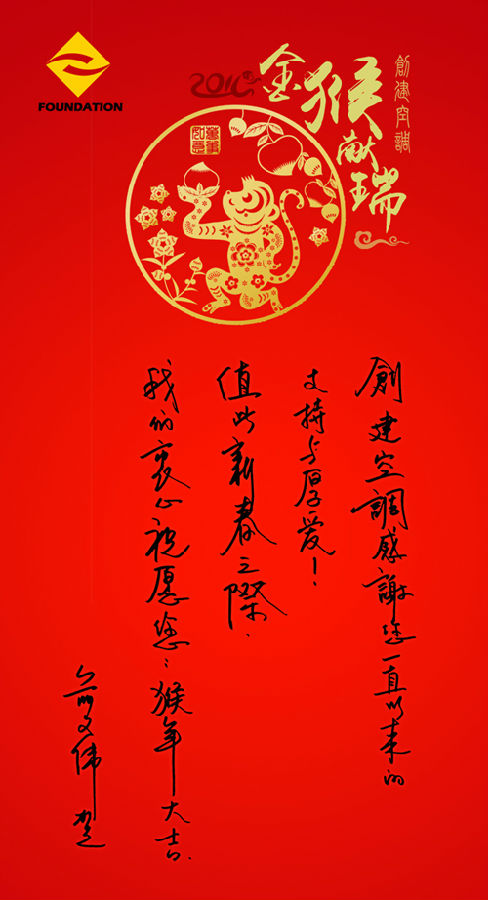 FOUNDATION
2016
金猴献瑞
創建空調
萬事如意
創建空調感謝您一直以来的
支持与厚爱！
值此新春之際，
我的衷心祝愿您：猴年大吉。